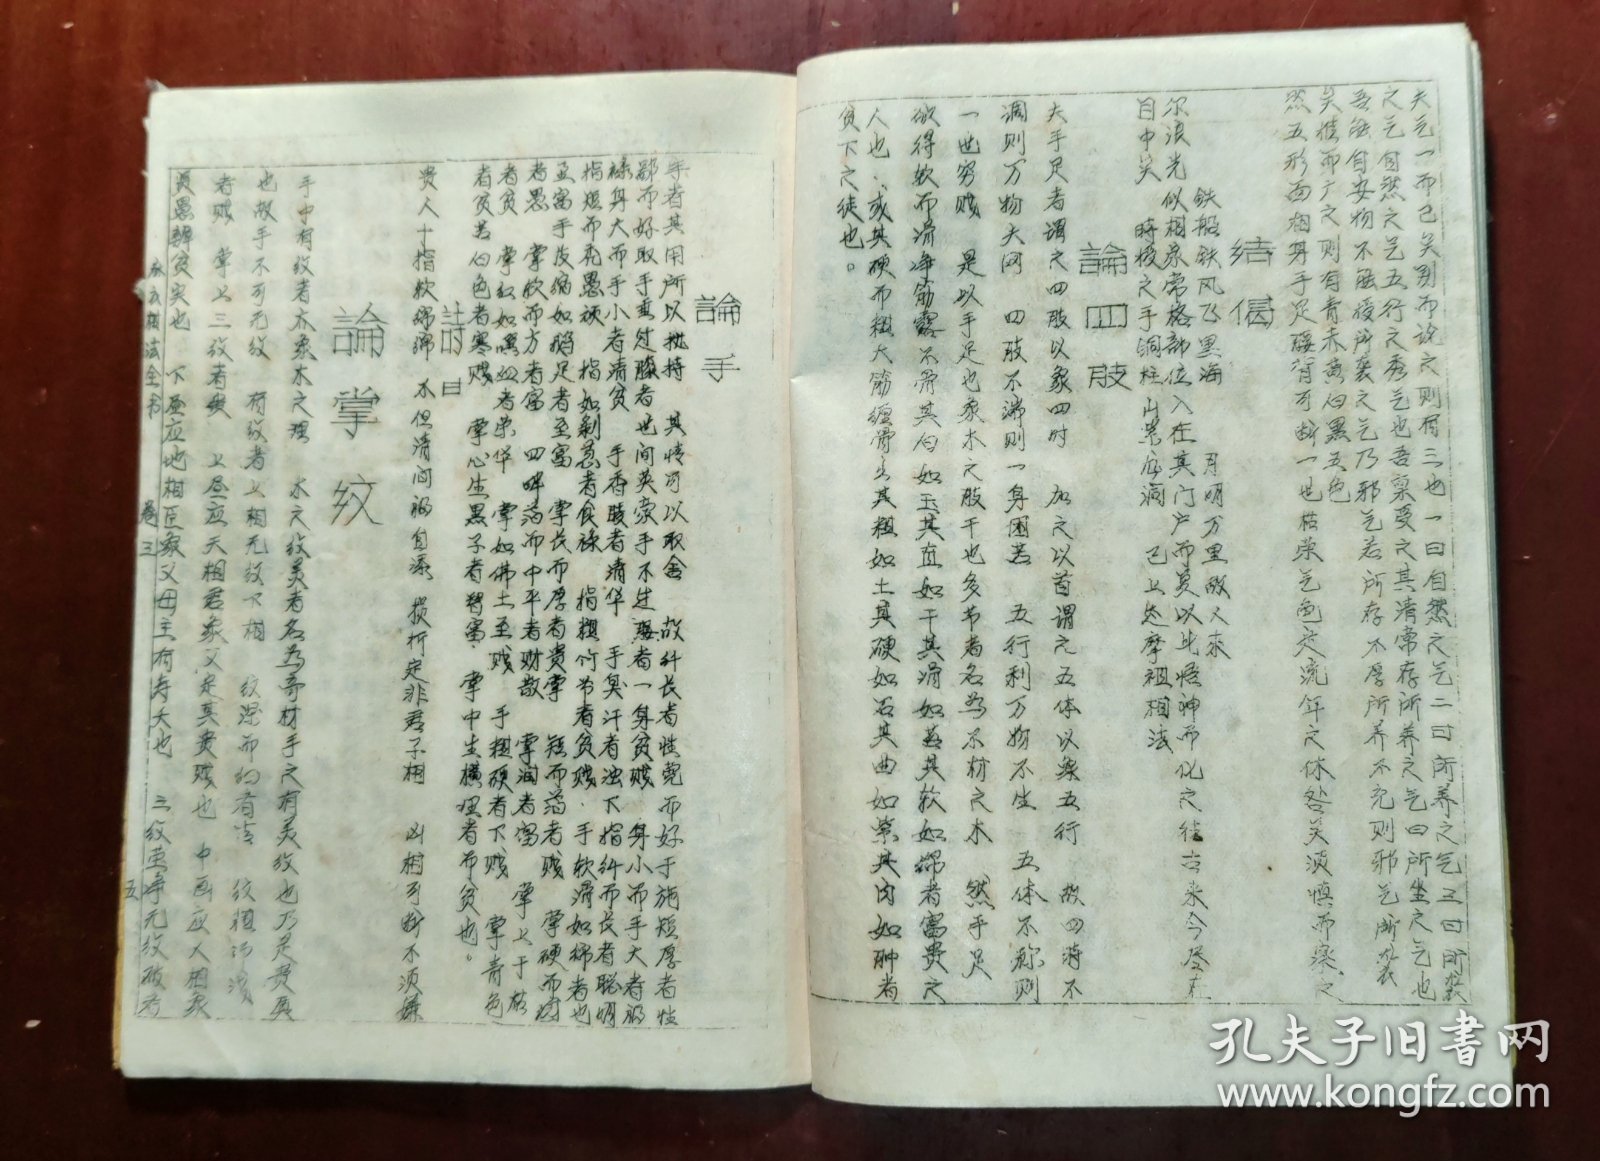 夫气一而已矣别而论之则有三也一曰自然之气二曰所养之气三曰所袭
之气自然之气五行之秀气也吾禀受之其清常存所养之气曰所坐之气也
吾能自安物不能扰所袭之气乃邪气若所存不厚所养不充则邪气所袭
矣推而广之则有青赤黄白黑五色
然五形面相身手足腰背可断一世枯荣气色定流年之休咎矣须慎而察之
結偈
铁船铁风飞黑海 月明万里故人来
尔浪光似相泉常格部位入在其门户而莫以此悟神而化之往古来今尽在
目中矣 時授之手洞柱山紫府洞 已上达摩祖相法
論四肢
夫手足者谓之四肢以象四时 加之以首谓之五体以象五行 故四時不
调则万物夭闭 四肢不端则一身困苦 五行利万物不生 五体不称则
一世穷贱 是以手足也象木之肢干也多节者名为不材之木 然手足
欲得软而滑净筋露不骨其白如玉其直如干其滑如苔其软如绵者富贵之
人也,或其硬而粗大筋缠骨出其粗如土其硬如石其曲如紫其肉如肿者
贫下之徒也。
論手
手者其用所以执持 其情可以取舍 故纤长者性慈而好于施短厚者性
鄙而好取手垂过膝者也间英豪手不过腰者一身贫贱 身小而手大者福
禄身大而手小者清贫 手香暖者清华 手臭汗者浊下指纤而长者聪明
指短而秃愚顽 指如剥葱者食禄 指粗竹节者贫贱.手软滑如绵者也
至富手皮缩如鹅足者至富 掌长而厚者贵掌 短而薄者贱 掌硬而薄
者愚 掌软而方者富 四畔高而中平者财散 掌润者富 掌上干枯
者贫 掌红如噀血者荣华 掌如佛土至贱 手粗硬者下贱 掌青色
者贫苦白色者寒贱 掌心生黑子者智富.掌中生横理者而贫也。
詩曰
贵人十指软绵绵 不但清闲福自添 损折定非君子相 凶相可断不须嫌
論掌紋
手中有紋者亦象木之理 木之紋美者名为奇材手之有美紋也乃是贵质
也故手不可无紋 有紋者上相无紋下相 紋深而幻者吉 紋粗而浅
者贱 掌上三紋者 上尽应天相君象父定其贵贱也 中画应人相象
贤愚辨贫实也 下尽应地相臣象父母主有寿夭也 三紋莹净无紋破者
麻衣相法全书 卷三 五
孔夫子旧书网
www.kongfz.com